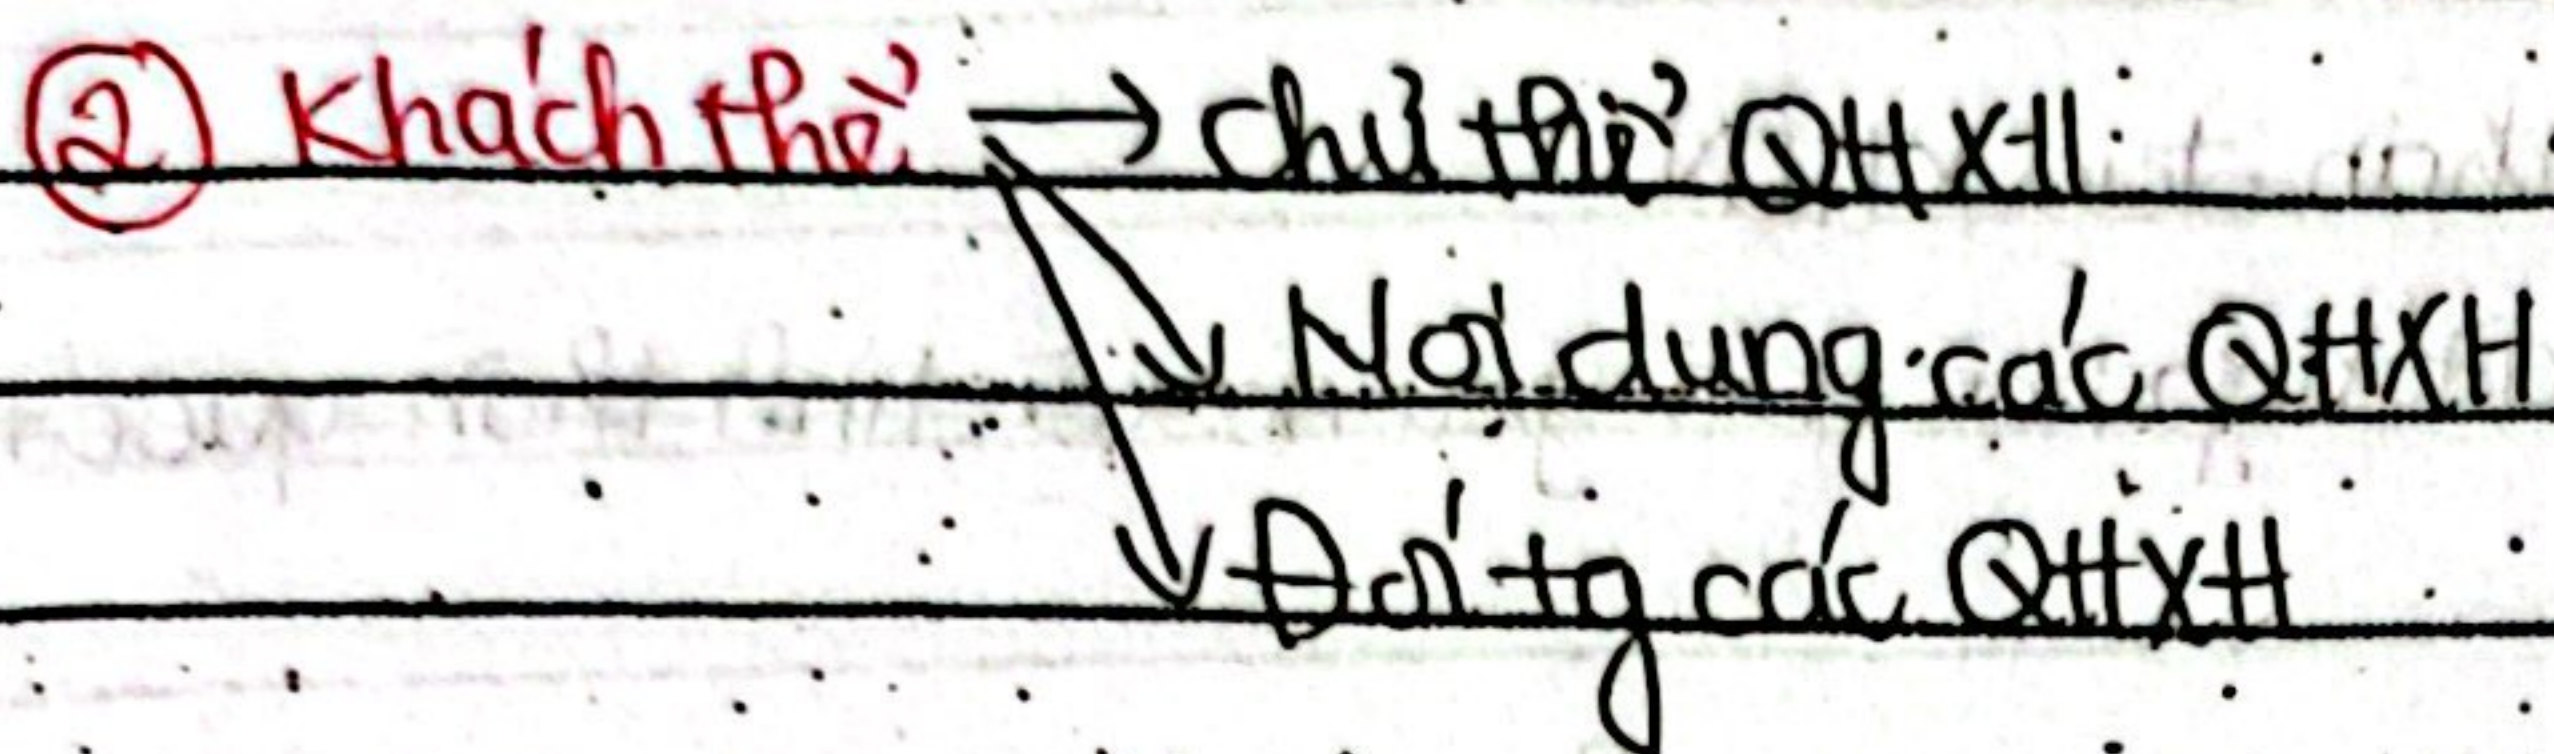 ② Khách thể → Chủ thể QHXH
Nội dung các QHXH
Đối tg các QHXH